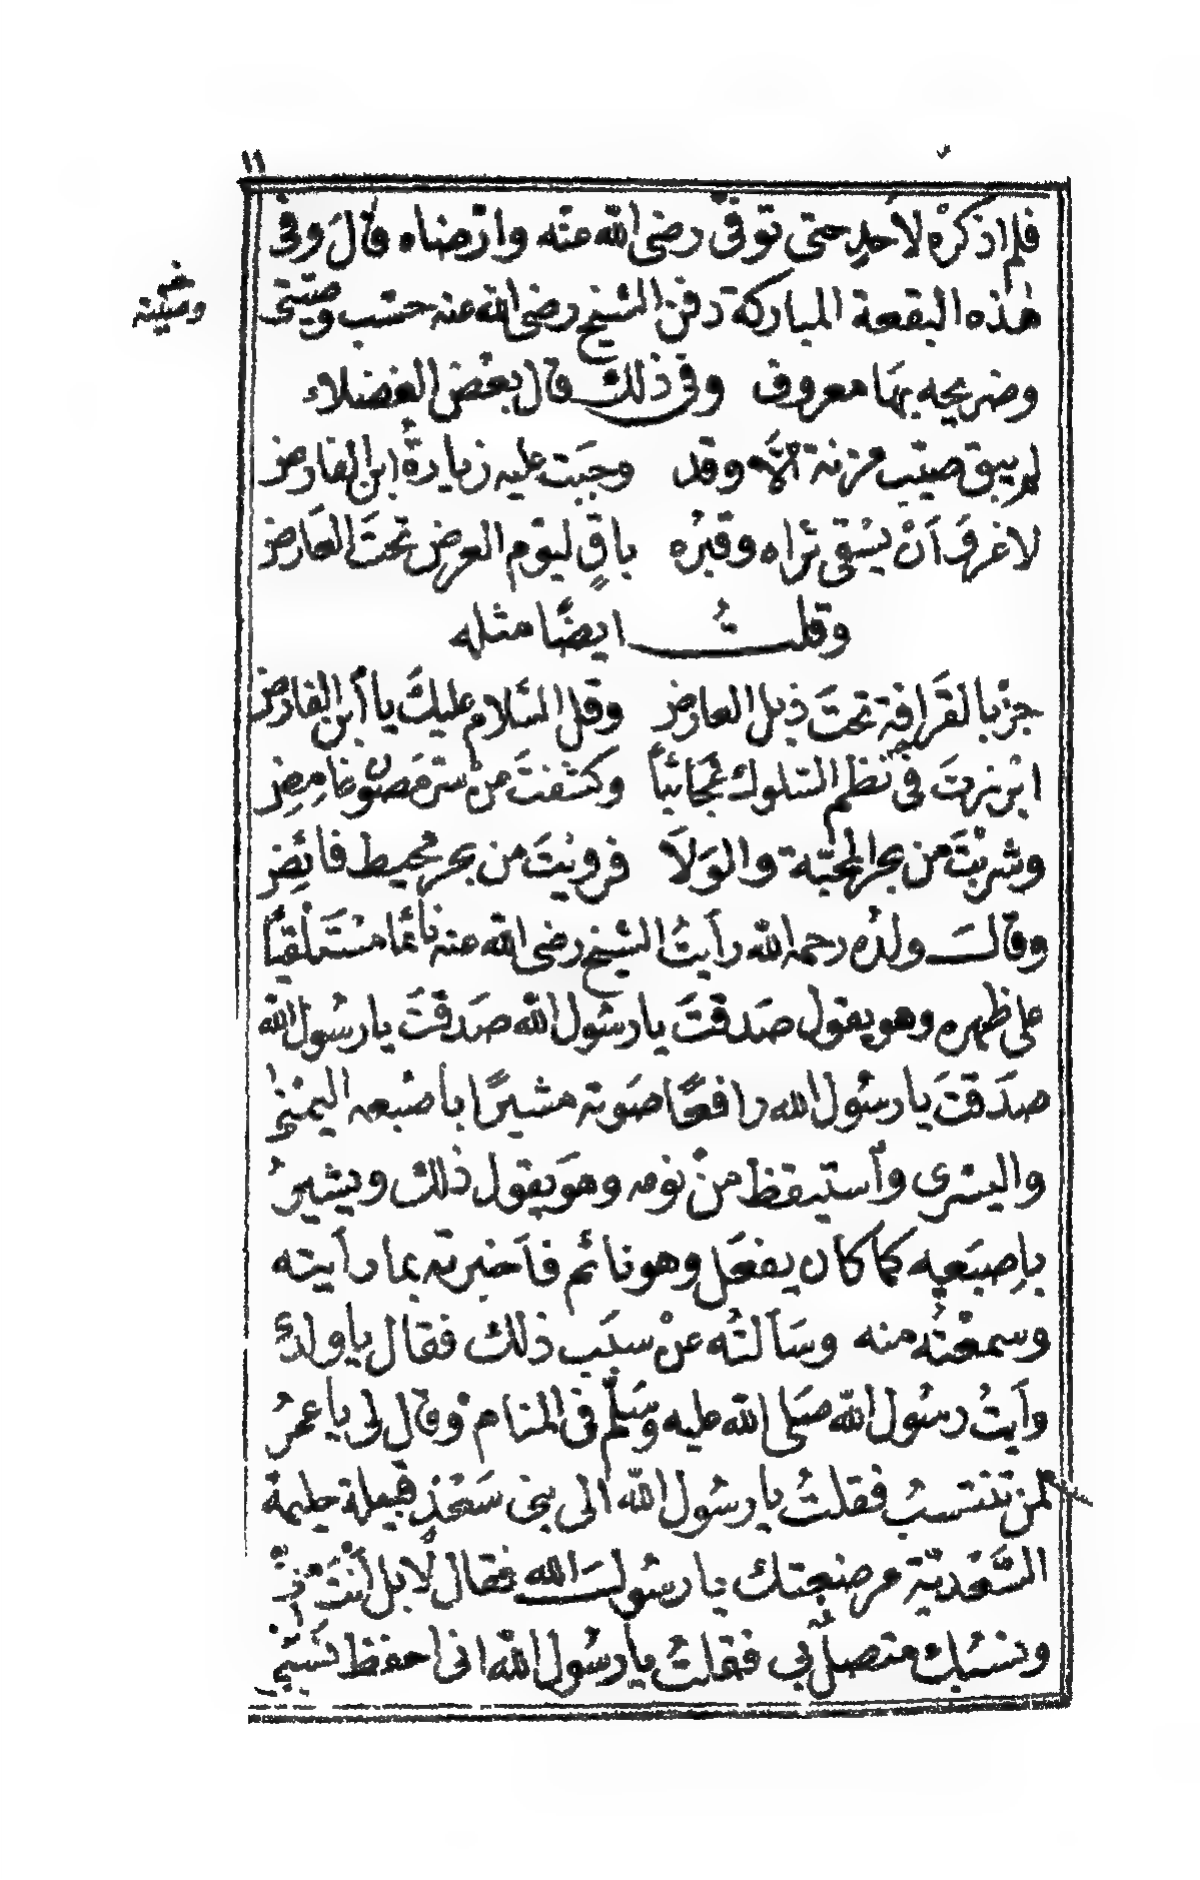 ١١
فلم اذكره لأحدٍ حتى توفي رضى الله عنه وارضاه قال وفى
هذه البقعة المباركة دفن الشيخ رضى الله عنه حسب وصيتى
وصيته
وضريحه بها معروف وفى ذلك قال بعض الفضلاء
لم يبق صيّب مزنة الّا وقد وجبت عليه زيادة ابن الفارض
لا غروَ أنْ يسقى ثراه وقبره باقٍ ليوم العرض تحت العارض
وقلتُ ايضًا مثله
جز بالقرافة تحتَ ذيل العارض وقل السَّلام عليك يا أبن الفارض
ابرزتَ فى نظم السلوك عجائباً وكشفتَ من سرّ مَصُونٍ غامِضِ
وشربْتَ من بحر المحبّة والوَلَا فرويتَ من بحر محيط فائضِ
وقالَ ولدُه رحمه الله رأيتُ الشيخ رضى الله عنه نائما مستلقيًا
على ظهره وهو يقول صَدقتَ يا رسُول الله صَدقتَ يا رسُول الله
صدَقتَ يا رسُول الله رافعًا صَوته مشيرًا بأصبعه اليمنى
واليسرى وأستيقظ من نومه وهوَ يقول ذلك ويشيرُ
بإصبَعيه كما كان يفعَل وهو نائم فأخبرته بما رأيته
وسمعْتهُ منه وسَألتُه عنْ سبَب ذلك فقال يا ولدى
رأيتُ رسُول الله صَلى الله عليه وسَلّم فى المنام وقال لى يا عمرُ
لمن تنتسبُ فقلتُ يا رسُول الله الى بنى سَعْدٍ قبيلة حليمة
السَّعْديّة مرضعتك يا رسُول الله فقال لا بل أنتَ منّى
ونسبُك متصل بى فقلتُ يا رسُول الله انى احفظ نسَبى